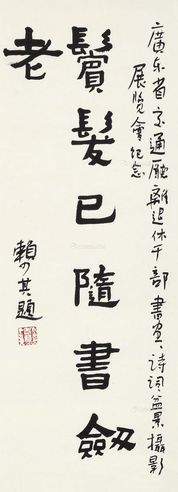 廣东省交通厛離退休干部書画、詩詞、盆景攝影
展览會纪念
鬢髮已隨書劍
老
賴少其題